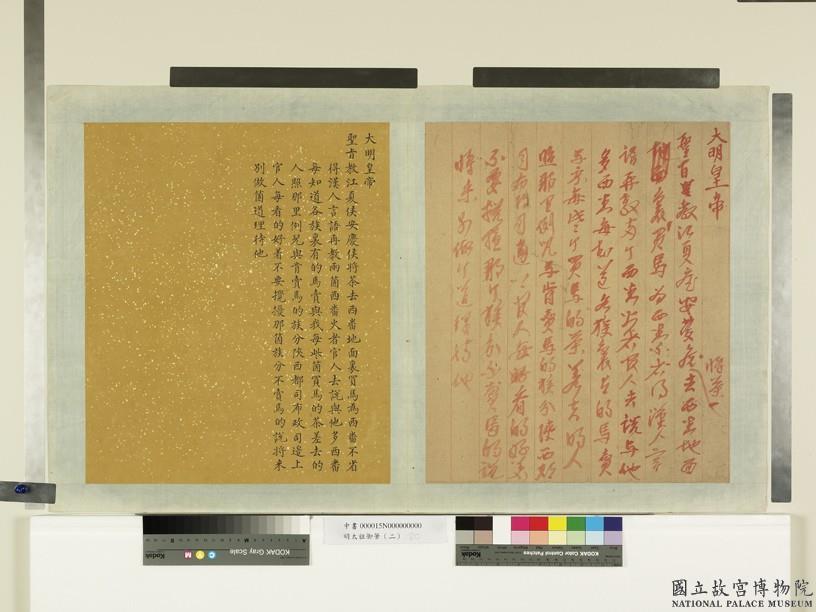 大明皇帝
聖旨教江夏侯安慶侯將茶去西番地
裏買馬為西番不省得漢人言
語再教兩个西番火者官人去說与他
多西番每知道各族裏有的馬賣
与我每些个買馬的茶差去的人
照那里例兒与肯賣馬的族分陝西都
司布政司邊上官人每看的好着
不要攪擾那个族分不賣馬的說
將來別做个道理待他
將茶
大明皇帝
聖旨教江夏侯安慶侯將茶去西番地面裏買馬為西番不省
得漢人言語再教兩箇西番火者官人去說與他多西番
每知道各族裏有的馬賣與我每些箇買馬的茶差去的
人照那里例兒與肯賣馬的族分陝西都司布政司邊上
官人每看的好着不要攪擾那箇族分不賣馬的說將来
別做箇道理待他
Kodak
KODAK Gray Scale
C Y M
中書000015N000000000
明太祖御筆（二）
Kodak
KODAK Color Control Patches
國立故宮博物院
NATIONAL PALACE MUSEUM